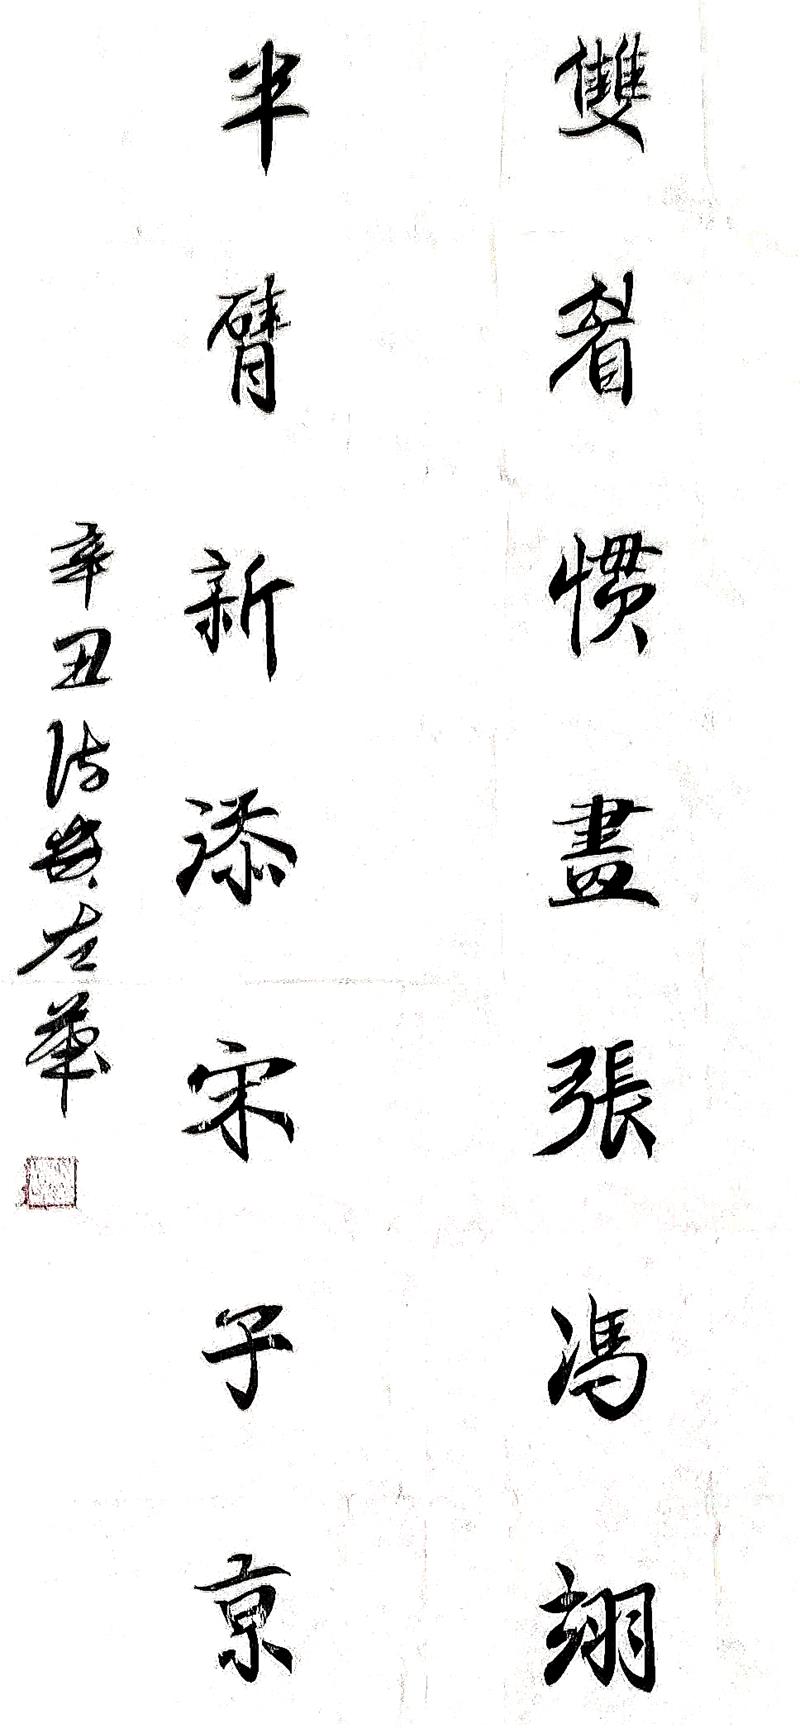 雙眉慣畫張馮翊
半臂新添宋子京
辛丑左華